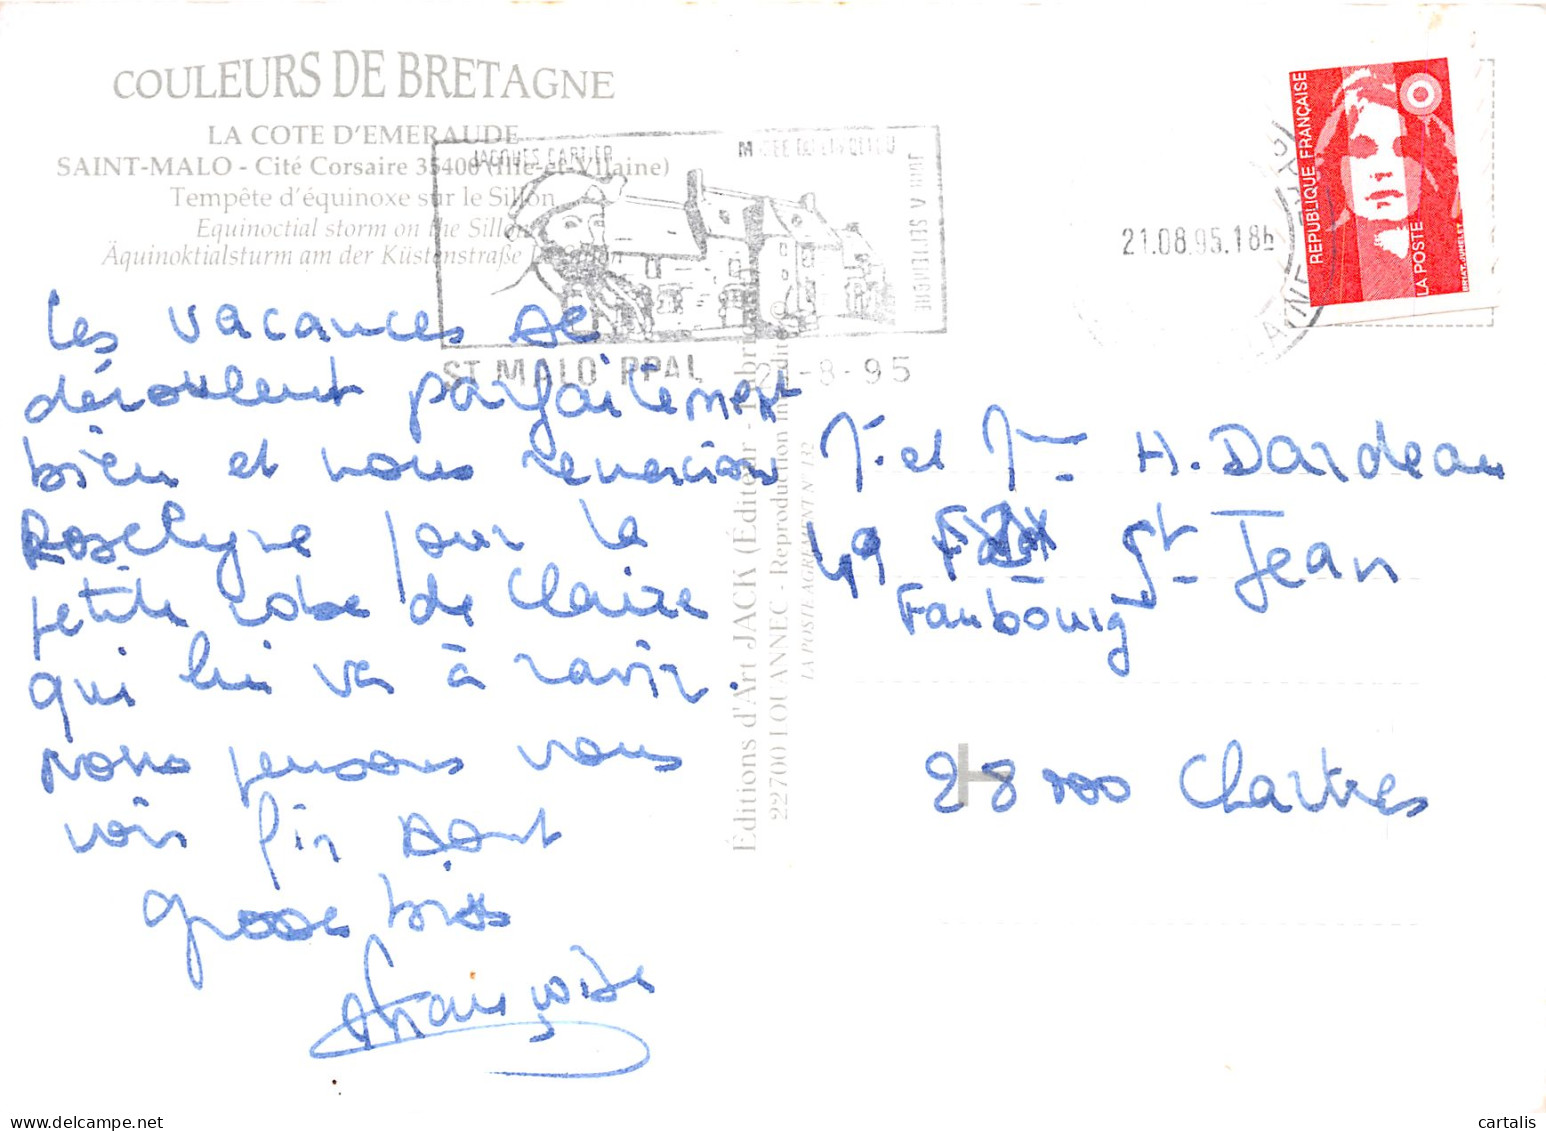 COULEURS DE BRETAGNE
LA COTE D'EMERAUDE
SAINT-MALO - Cité Corsaire 35400 (Ille-et-Vilaine)
Tempête d'équinoxe sur le Sillon
Equinoctial storm on the Sillon
Äquinoktialsturm am der Küstenstraße
JACQUES CARTIER
ST MALO PPAL 21-8-95
21.08.95.18h
REPUBLIQUE FRANÇAISE
LA POSTE
BRIAT-JUMELET
Les vacances se
déroulent parfaitement
bien et nous remercions
Roselyne pour la
petite robe de Claire
qui lui va à ravir.
Nous pensons vous
voir fin Août
grosses bises
Françoise
Éditions d'Art JACK (Éditeur -
22700 LOUANNEC - Reproduction interdite
LA POSTE AGREMENT N° 132
M. et Mme H. Dardeau
49 St Jean
Faubourg
28000 Chartres
cartalis